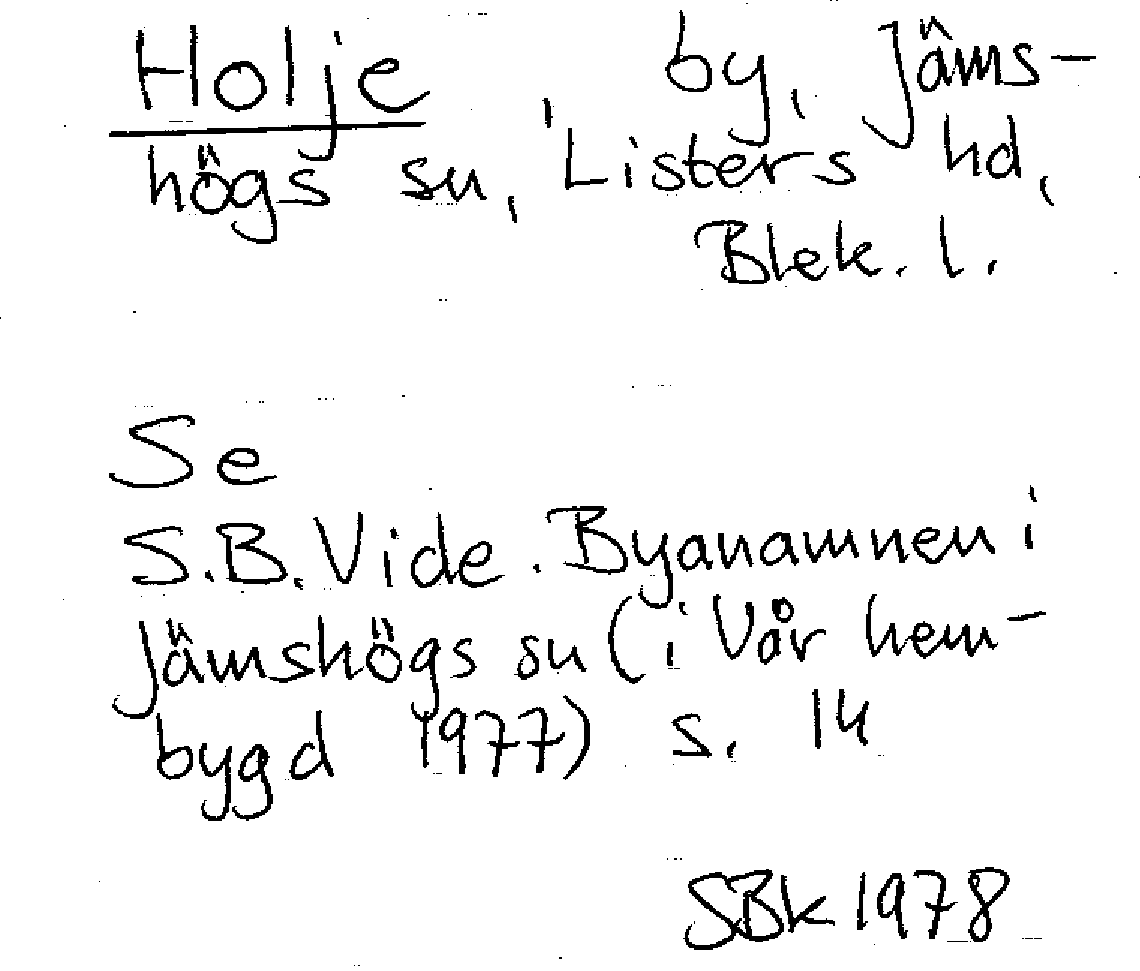 Holje by, Jäms-
högs sn, Listers hd,
Blek. l.
Se
S.B. Vide. Byanamnen i
Jämshögs sn (i Vår hem-
bygd 1977) s. 14
SBk 1978